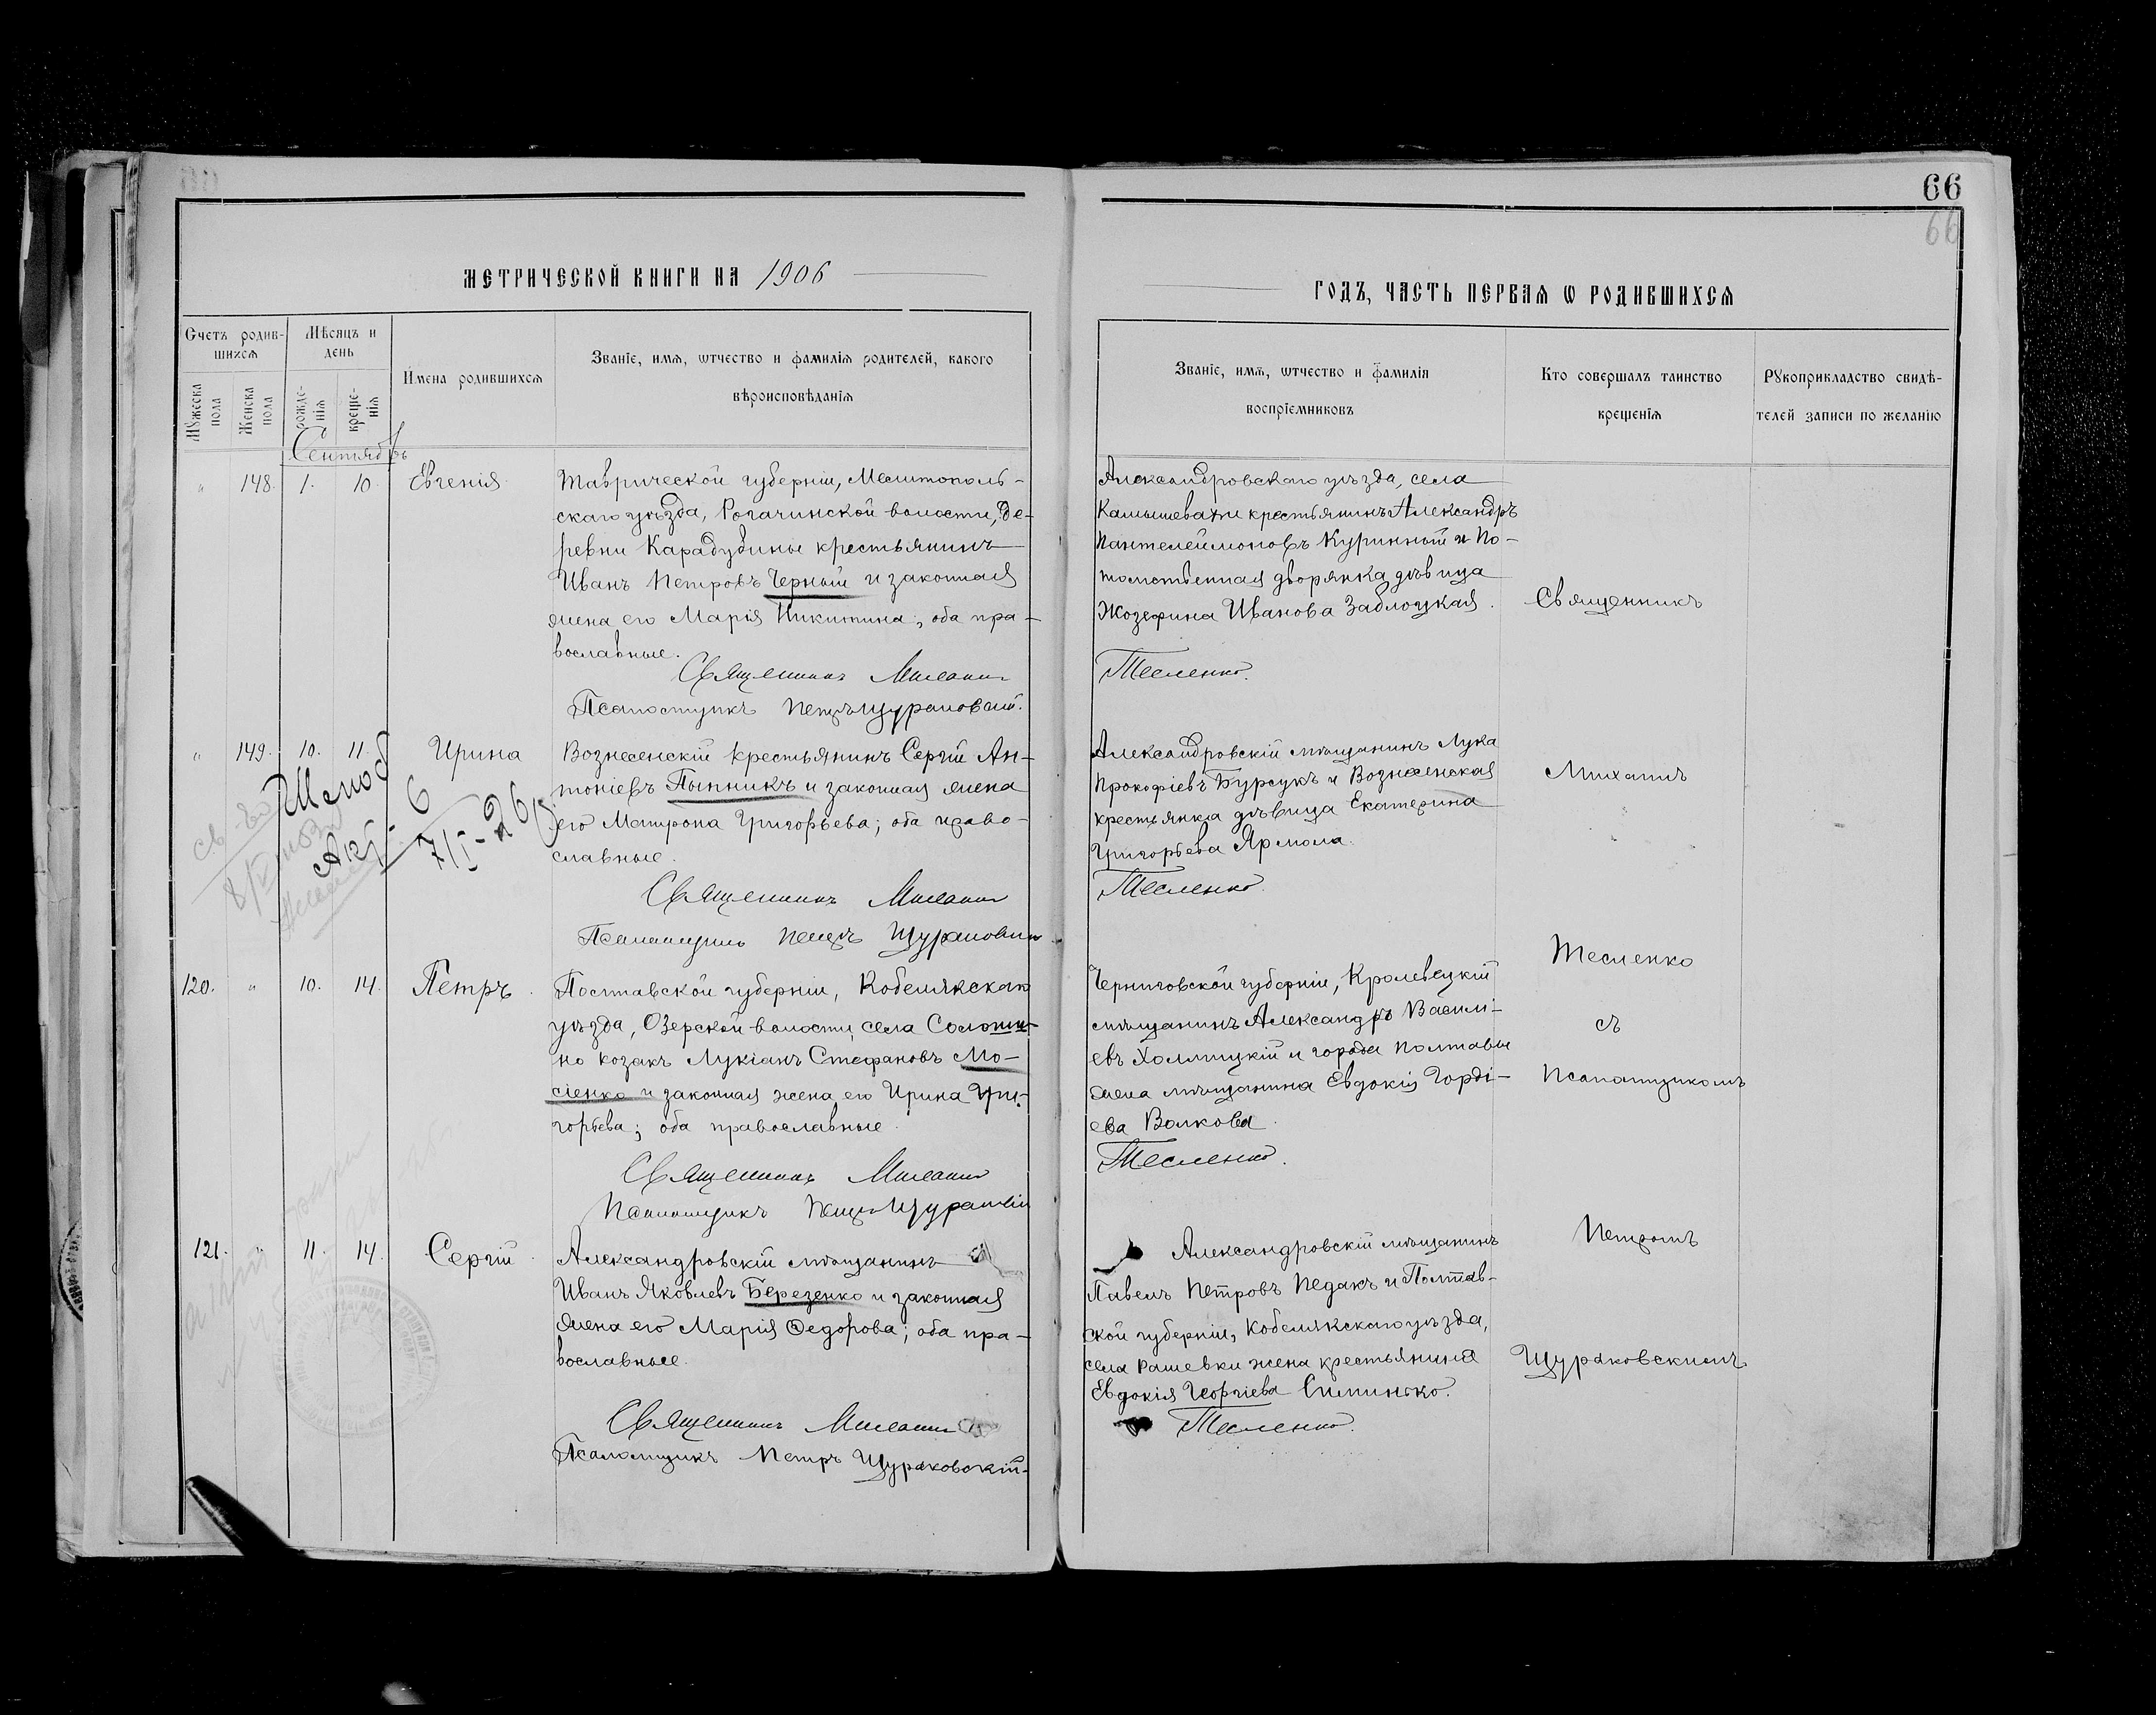 66
66
МЕТРИЧЕСКОЙ КНИГИ НА 1906
ГОДЪ, ЧАСТЬ ПЕРВАЯ Ѡ РОДИВШИХСЯ
Счетъ родив-
шихся
Мѣсяцъ и
день
Мужеска
пола
Женска
пола
рожде-
нія
креще-
нія
Имена родившихся
Званіе, имя, ѡтчество и фамилія родителей, какого
вѣроисповѣданія
Званіе, имя, ѡтчество и фамилія
воспріемниковъ
Кто совершалъ таинство
крещенія
Рукоприкладство свидѣ-
телей записи по желанію
Сентябрь
" 148. 1. 10. Евгенія.
Таврической губерніи, Мелитополь-
скаго уѣзда, Рогачинской волости, де-
ревни Карадубины крестьянинъ
Иванъ Петровъ Черный и законная
жена его Марія Никитина; оба пра-
вославные.
Священникъ
Псаломщикъ Петръ Щураковскій.
Александровскаго уѣзда, села
Камышевахи крестьянинъ Александръ
Пантелеймоновъ Куринный и По-
томственная дворянка дѣвица
Жозефина Иванова Заблоцкая.
Тесленко.
" 149. 10. 11. Ирина
Вознесенскій крестьянинъ Сергій Ан-
тоніевъ Пынникъ и законная жена
его Матрона Григорьева; оба право-
славные.
Священникъ
Псаломщикъ Петръ Щураковскій
Александровскій мѣщанинъ Лука
Прокофіевъ Бурсукъ и Вознесенская
крестьянка дѣвица Екатерина
Григорьева Ярмола.
Тесленко.
6
7/I-26
120. " 10. 14. Петръ.
Полтавской губерніи, Кобелякскаго
уѣзда, Озерской волости, села Солоши-
но козакъ Лукіанъ Стефановъ Мо-
сіенко и законная жена его Ирина Гри-
горьева; оба православные.
Священникъ
Псаломщикъ Петръ Щураковскій
Черниговской губерніи, Кролевецкій
мѣщанинъ Александръ Василі-
евъ Холмицкій и города Полтавы
жена мѣщанина Евдокія Горді-
ева Волкова.
Тесленко.
121. " 11. 14. Сергій.
Александровскій мѣщанинъ
Иванъ Яковлевъ Березенко и законная
жена его Марія Ѳедорова; оба пра-
вославные.
Священникъ
Псаломщикъ Петръ Щураковскій.
Александровскій мѣщанинъ
Павелъ Петровъ Педакъ и Полтав-
ской губерніи, Кобелякскаго уѣзда,
села Рашевки жена крестьянина
Евдокія Георгіева Симинько.
Тесленко.
Священникъ
Михаилъ
Тесленко
съ
Псаломщикомъ
Петромъ
Щураковскимъ